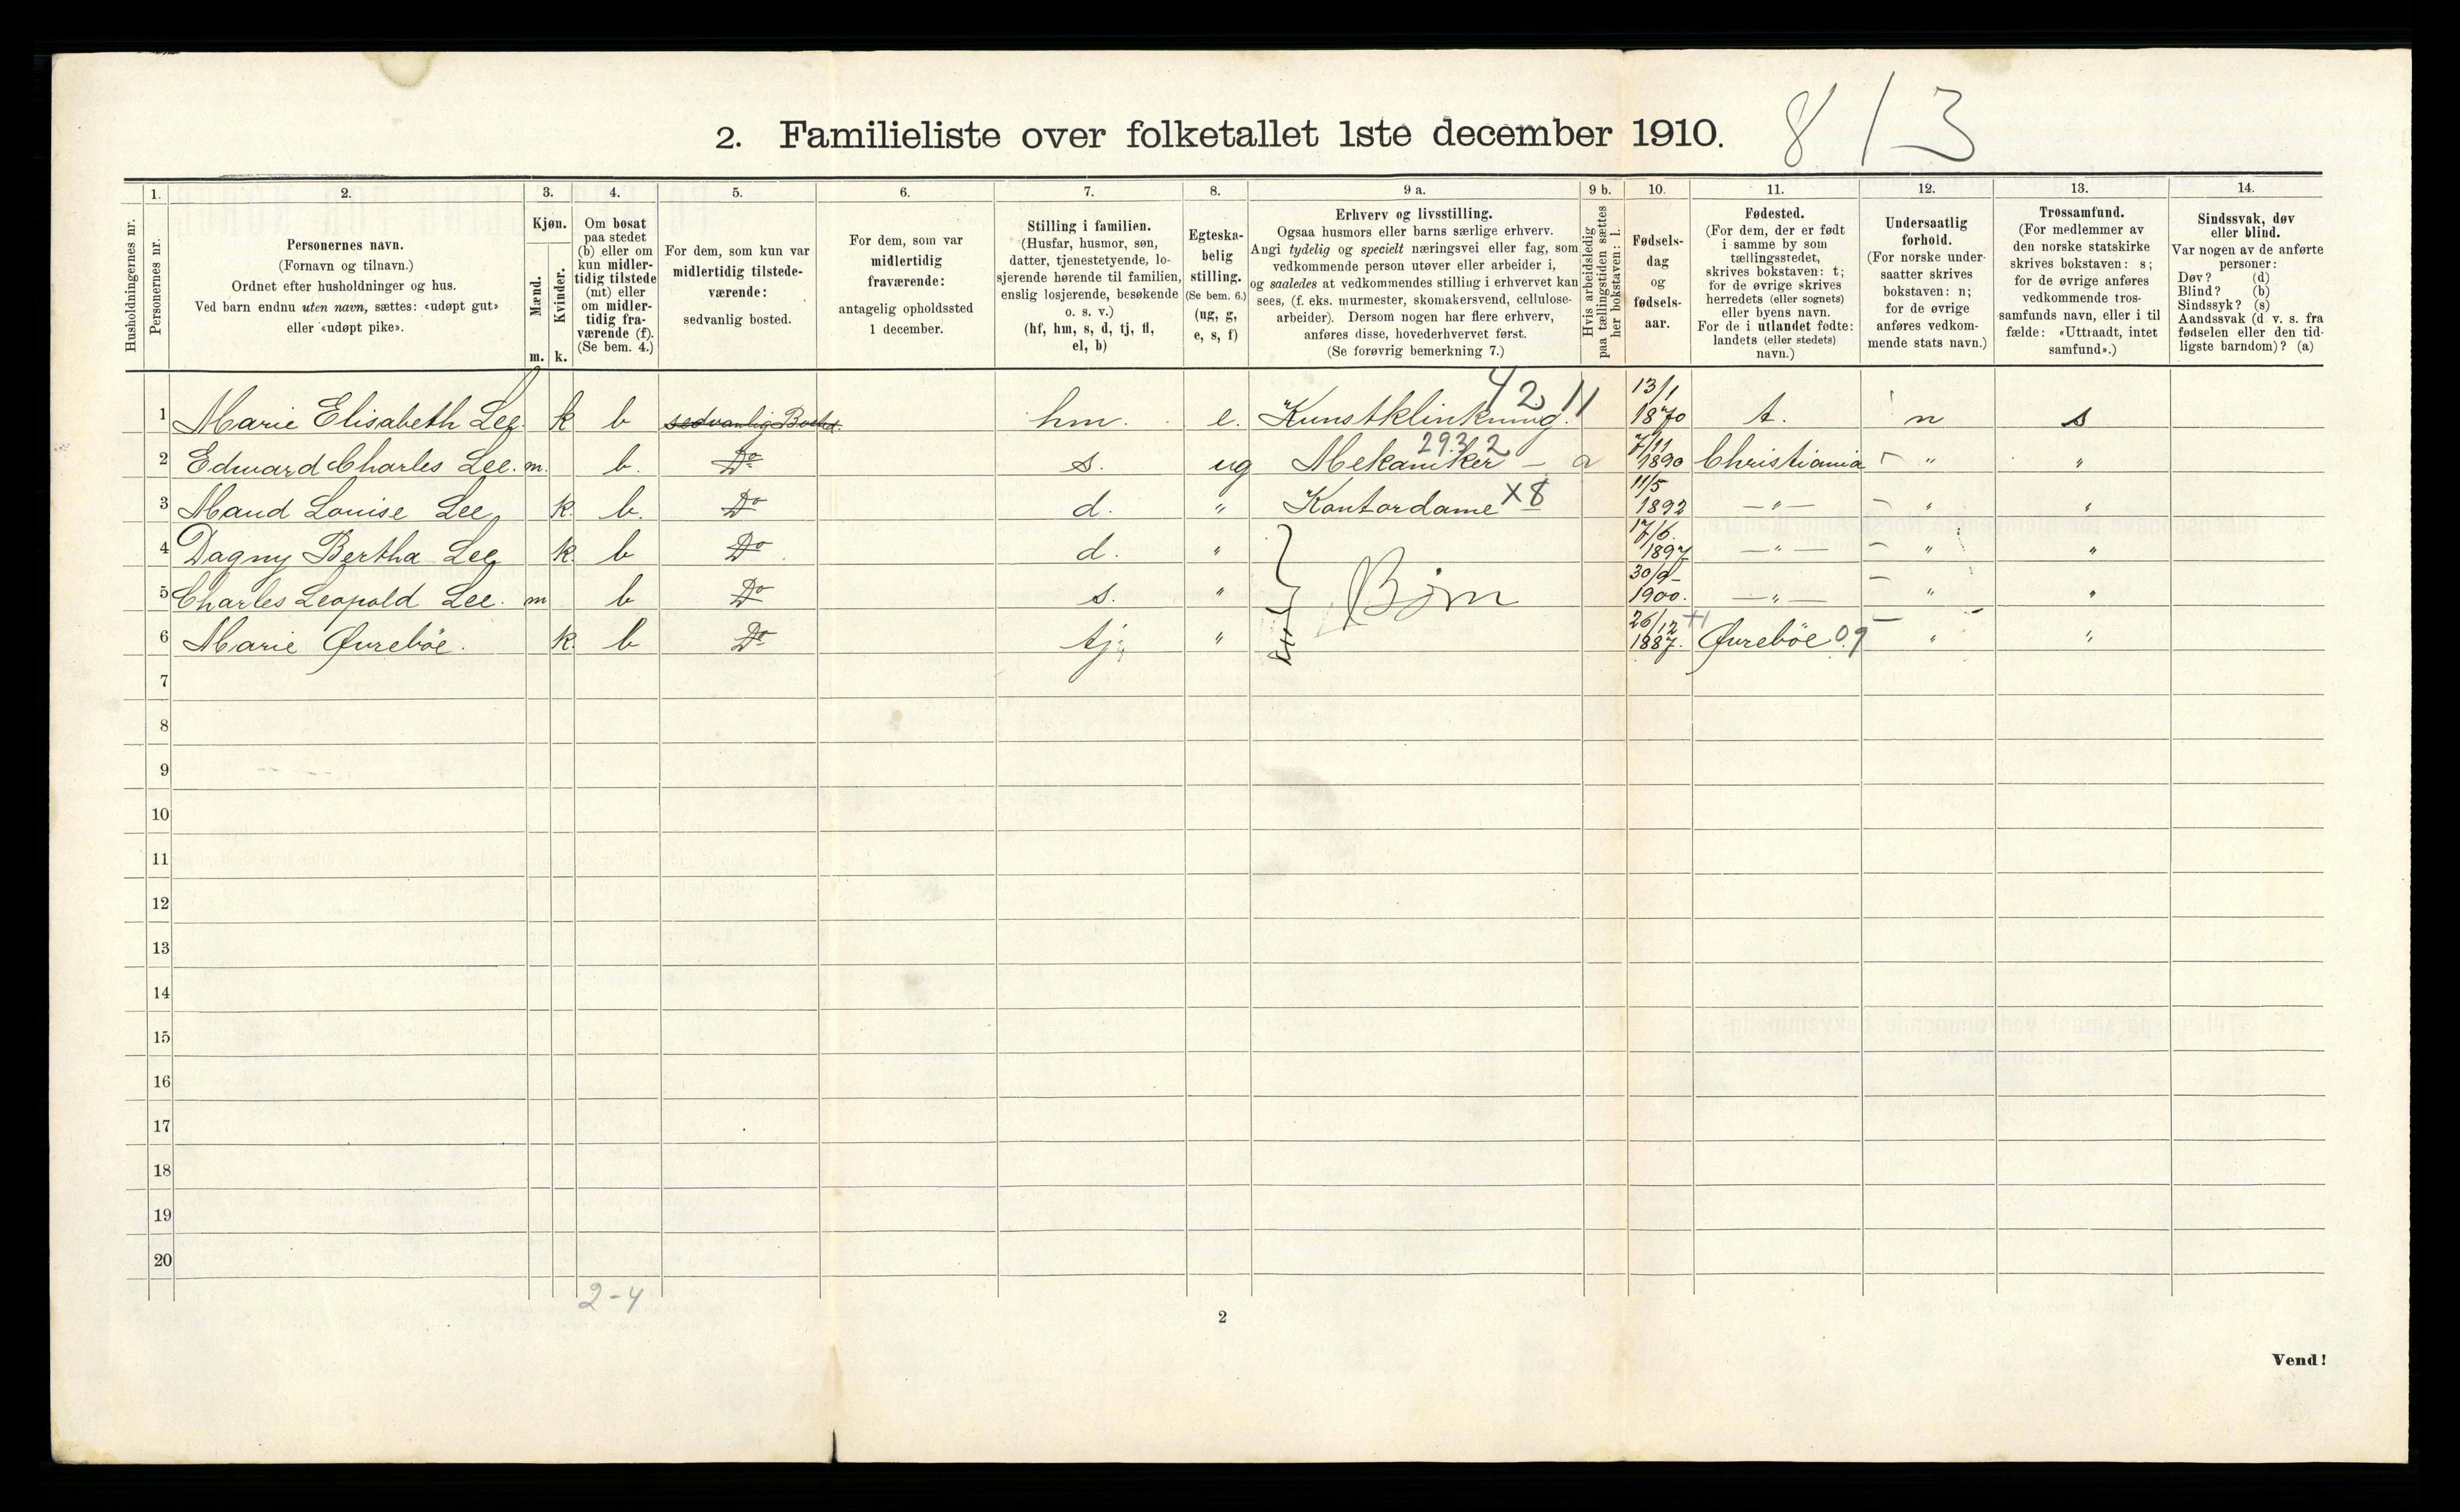 8 1 3
2. Familieliste over folketallet 1ste december 1910.
1. 2. 3. 4. 5. 6. 7. 8. 9 a. 9 b. 10. 11. 12. 13. 14.
Husholdningernes nr.
Personernes nr.
Personernes navn.
(Fornavn og tilnavn.)
Ordnet efter husholdninger og hus.
Ved barn endnu uten navn, sættes: «udøpt gut»
eller «udøpt pike».
Kjøn.
Mænd.
Kvinder.
m. k.
Om bosat
paa stedet
(b) eller om
kun midler-
tidig tilstede
(mt) eller
om midler-
tidig fra-
værende (f).
(Se bem. 4.)
For dem, som kun var
midlertidig tilstede-
værende:
sedvanlig bosted.
For dem, som var
midlertidig
fraværende:
antagelig opholdssted
1 december.
Stilling i familien.
(Husfar, husmor, søn,
datter, tjenestetyende, lo-
sjerende hørende til familien,
enslig losjerende, besøkende
o. s. v.)
(hf, hm, s, d, tj, fl,
el, b)
Egteska-
belig
stilling.
(Se bem. 6.)
(ug, g,
e, s, f)
Erhverv og livsstilling.
Ogsaa husmors eller barns særlige erhverv.
Angi tydelig og specielt næringsvei eller fag, som
vedkommende person utøver eller arbeider i,
og saaledes at vedkommendes stilling i erhvervet kan
sees, (f. eks. murmester, skomakersvend, cellulose-
arbeider). Dersom nogen har flere erhverv,
anføres disse, hovederhvervet først.
(Se forøvrig bemerkning 7.)
Hvis arbeidsledig
paa tællingstiden sættes
her bokstaven: l.
Fødsels-
dag
og
fødsels-
aar.
Fødested.
(For dem, der er født
i samme by som
tællingsstedet,
skrives bokstaven: t;
for de øvrige skrives
herredets (eller sognets)
eller byens navn.
For de i utlandet fødte:
landets (eller stedets)
navn.)
Undersaatlig
forhold.
(For norske under-
saatter skrives
bokstaven: n;
for de øvrige
anføres vedkom-
mende stats navn.)
Trossamfund.
(For medlemmer av
den norske statskirke
skrives bokstaven: s;
for de øvrige anføres
vedkommende tros-
samfunds navn, eller i til
fælde: «Uttraadt, intet
samfund».)
Sindssvak, døv
eller blind.
Var nogen av de anførte
personer:
Døv? (d)
Blind? (b)
Sindssyk? (s)
Aandssvak (d v. s. fra
fødselen eller den tid-
ligste barndom)? (a)
1 Marie Elisabeth Lee k b sedvanlig Bosted hm. e. 42 11 13/1 1870 t. n s
2 Edward Charles Lee. m. b. Do s. ug Mekaniker 293 2 - a 7/11 1890 Christiania " "
3 Maud Louise Lee k. b. Do d. " Kontordame X8 11/5 1892 - " - " "
4 Dagny Bertha Lee k. b Do d. " 17/6. 1897 - " - " "
Børn
5 Charles Leopold Lee. m b Do s. " 30/9 - 1900. - " - " "
6 Marie Øvrebøe. k. b Do tj. " 26/12 1887. Øvrebøe 09 " "
7
8
9
10
11
12
13
14
15
16
17
18
19
20
2-4
2
Vend!